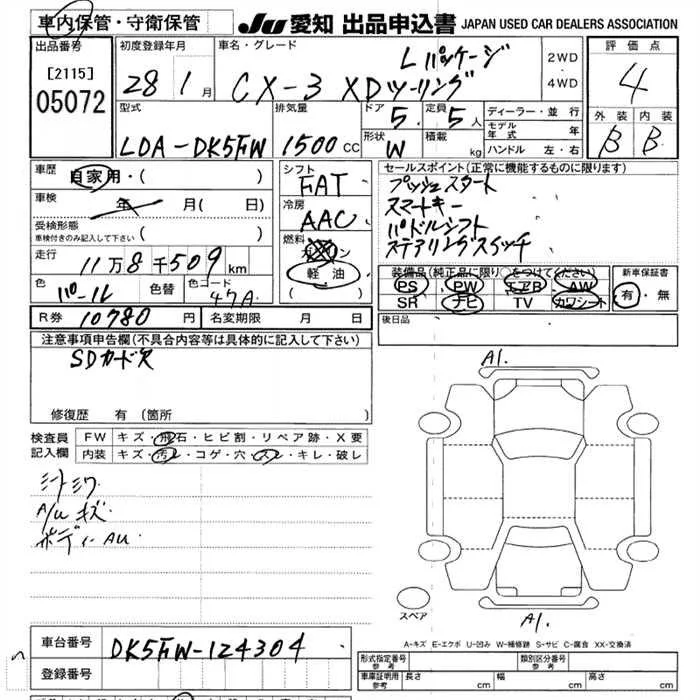 車内保管・守衛保管 JU 愛知 出品申込書 JAPAN USED CAR DEALERS ASSOCIATION
出品番号 [2115] 05072
初度登録年月 28 1月
車名・グレード CX-3 XDツーリング Lパッケージ
2WD
4WD
評価点 4
外装 B 内装 B
型式 LDA-DK5FW
排気量 1500 CC
ドア 5. 定員 5人
形状 W 積載 kg
ディーラー・並行
モデル年式 年
ハンドル 左・右
車歴 自家用・( )
車検 年 月( 日)
受検形態
車検付きのみ記入して下さい ( )
走行 11万8千509km
色 パール 色替 色コード 47A
シフト FAT
冷房 AAC
燃料 ガソリン
軽油
( )
セールスポイント(正常に機能するものに限ります)
プッシュスタート
スマートキー
パドルシフト
ステアリングスイッチ
装備品(純正品に限り○をつけてください)
PS PW エアB AW
SR ナビ TV カワシート
新車保証書
有・無
R券 10780円 名変期限 月 日
後日品
注意事項申告欄(不具合内容等は具体的に記入して下さい)
SDカード欠
修復歴 有(箇所 )
検査員記入欄
FW キズ・飛石・ヒビ割・リペア跡・X要
内装 キズ・汚レ・コゲ・穴・スレ・キレ・破レ
シートシワ
A/Uキズ
ボディーAU
A1.
A1.
スペア
A-キズ E-エクボ U-凹み W-補修跡 S-サビ C-腐食 XX-交換済
車台番号 DK5FW-124304
登録番号
形式指定番号 参考 類別区分番号 参考
車庫証明用 参考 長さ cm 幅 cm 高さ cm